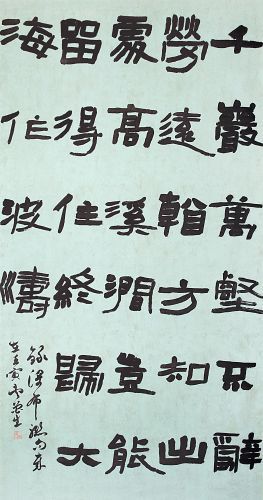 千巖萬壑不辭
勞遠看方知出
處高溪澗豈能
留得住終歸大
海作波濤
錄瀑布聯句
壬寅